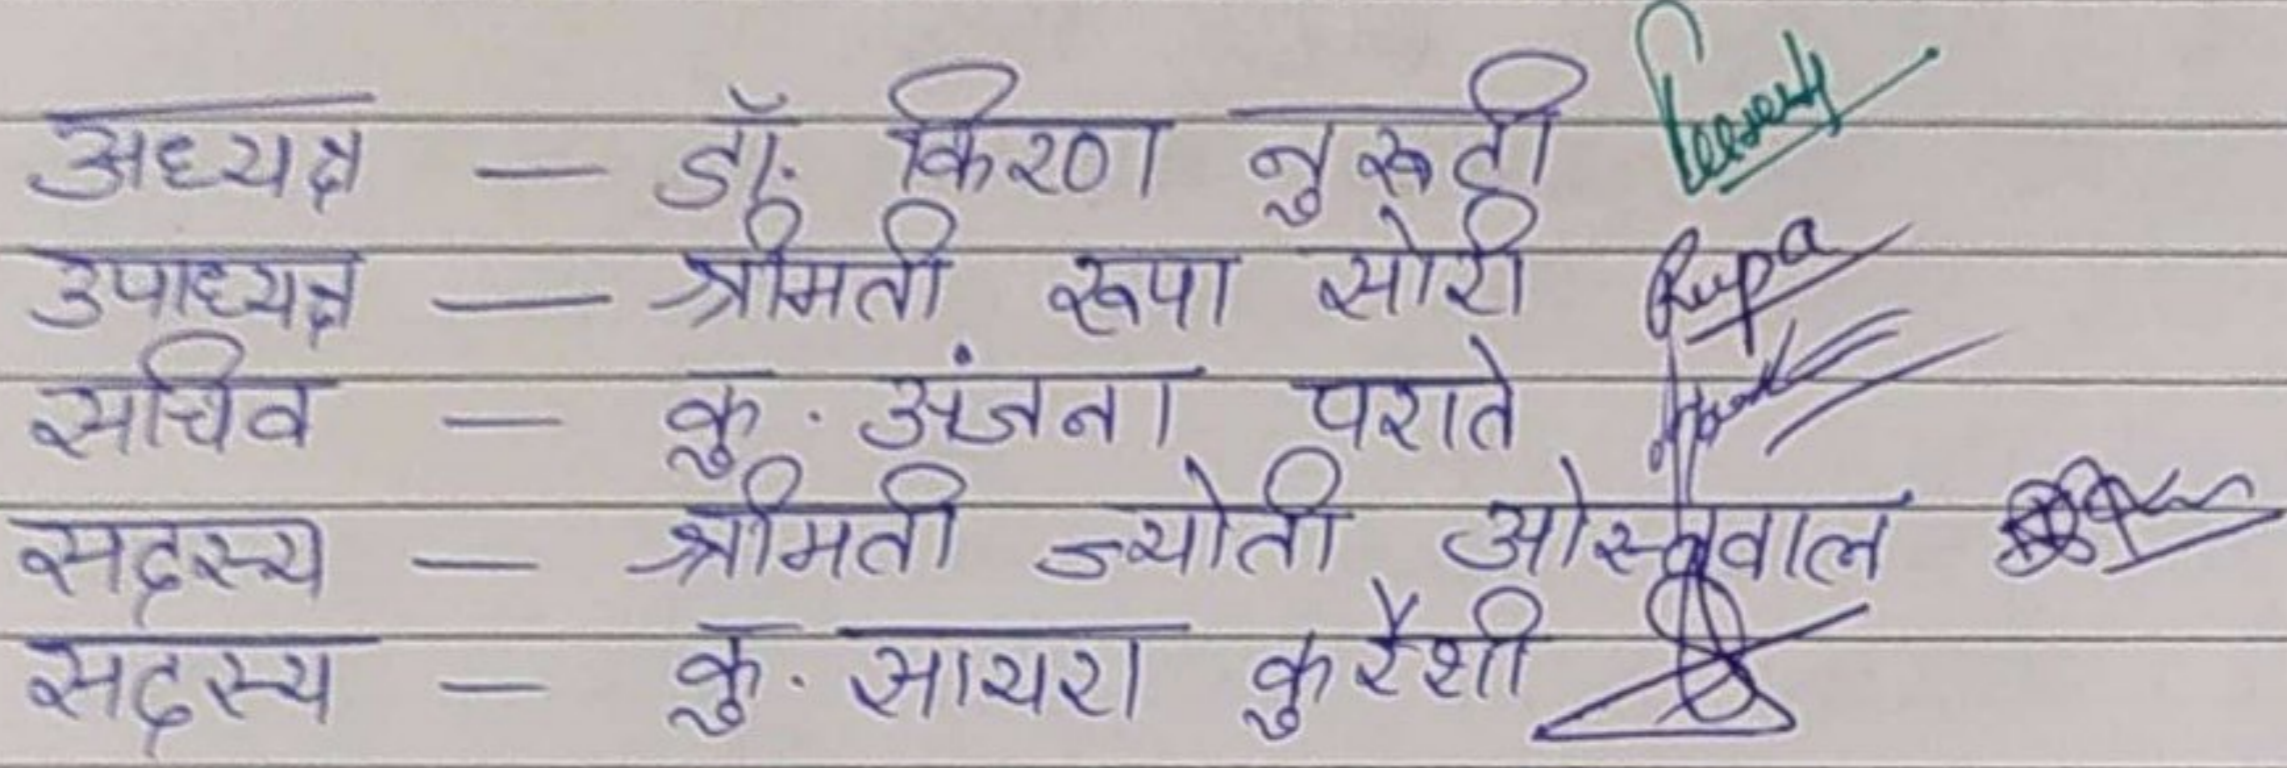 अध्यक्ष — डॉ. किरण नुरूटी
उपाध्यक्ष — श्रीमती रूपा सोरी Rupa
सचिव — कु. अंजना पराते
सदस्य — श्रीमती ज्योती ओस्तवाल
सदस्य — कु. सायरा कुरैशी